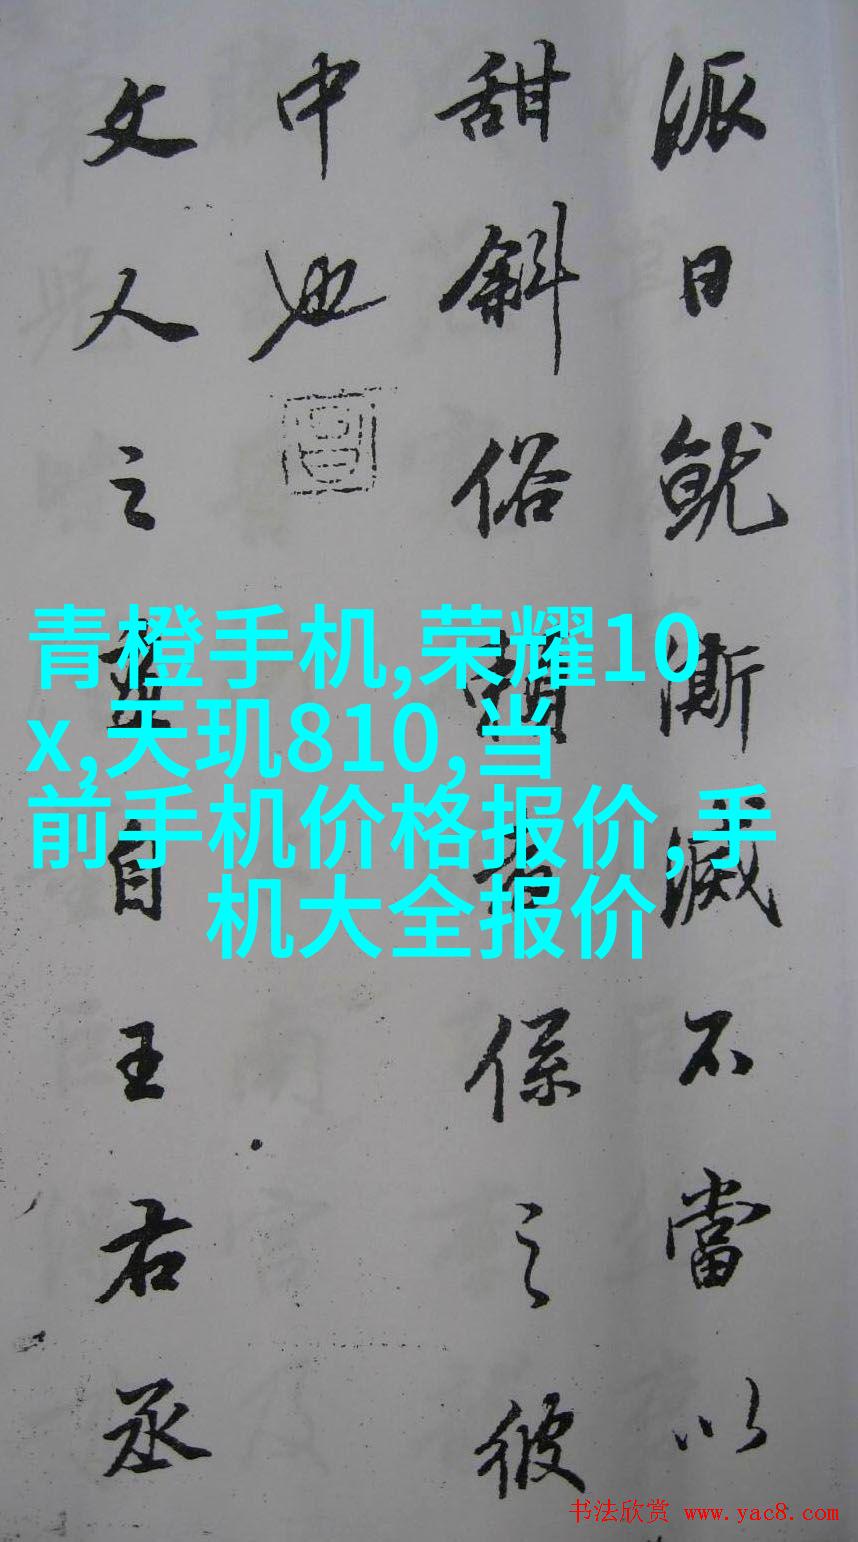 派日就澌滅不當以
甜斜俗賴者係之彼
中也
文人之畫自王右丞
青橙手机,荣耀10
x,天玑810,当
前手机价格报价,手
机大全报价
书法欣赏 www.yac8.com